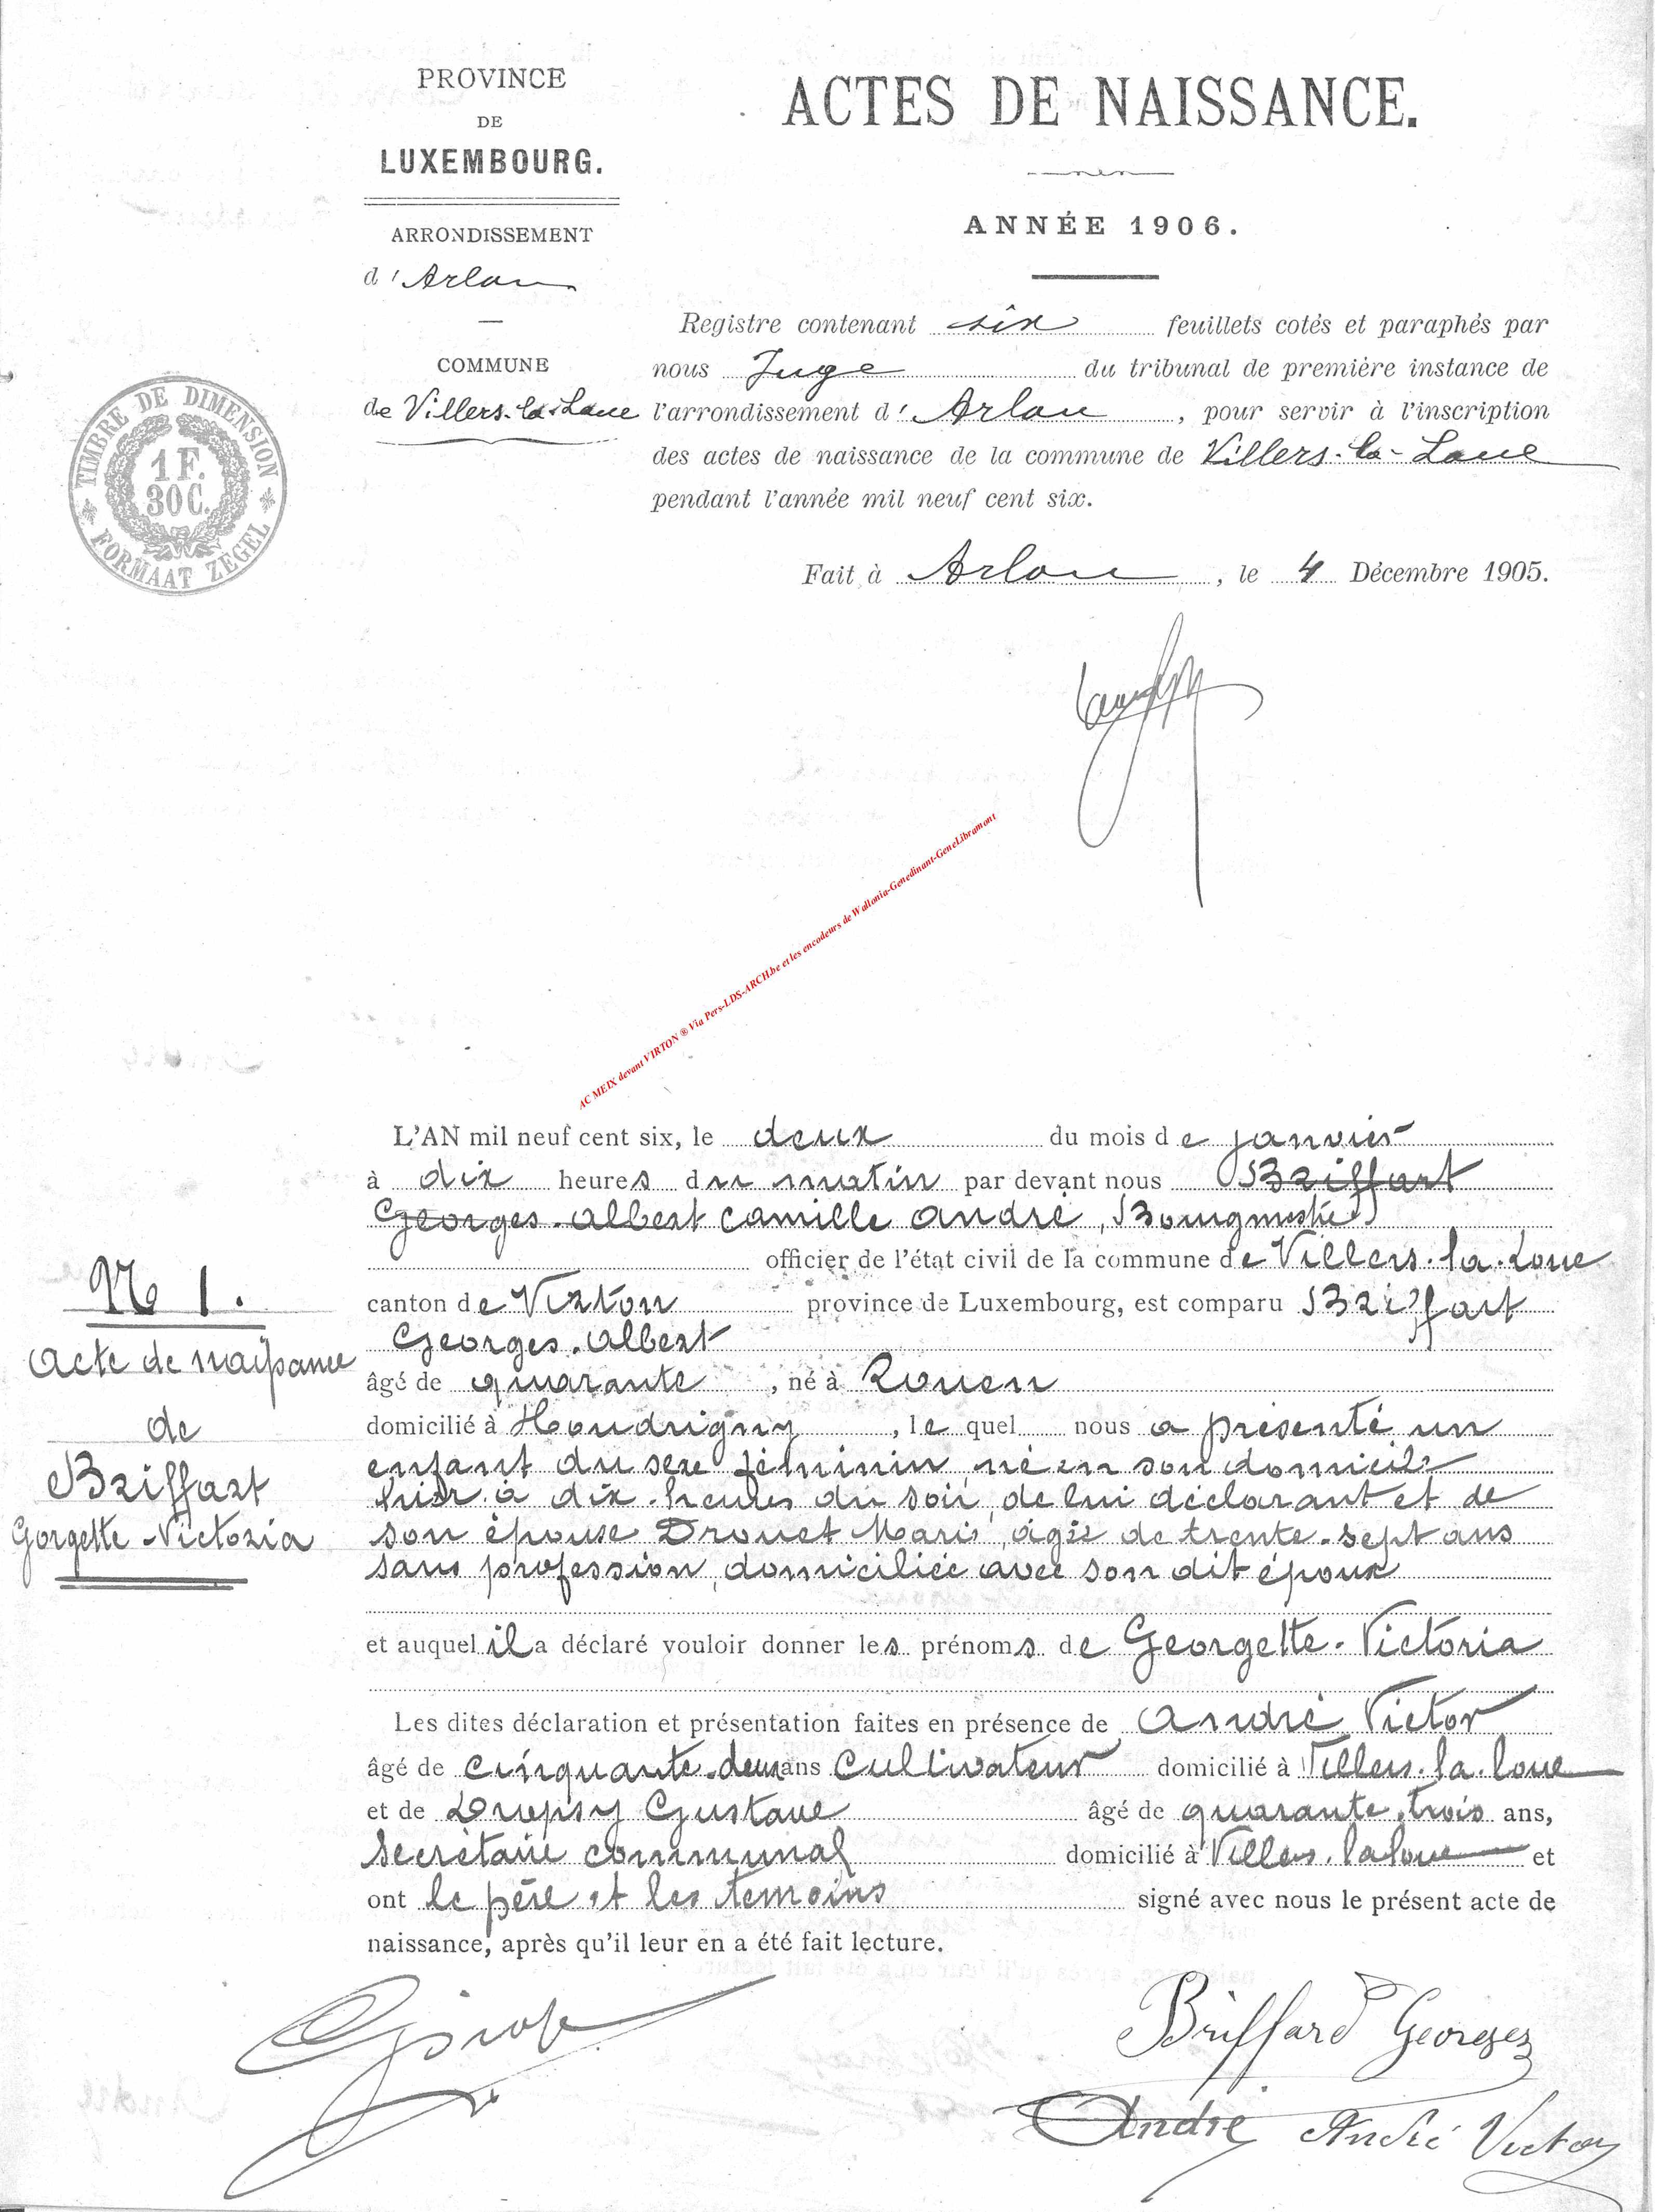 PROVINCE
DE
LUXEMBOURG.
ARRONDISSEMENT
d'Arlon
COMMUNE
de Villers-la-Loue
TIMBRE DE DIMENSION
1 F.
30 C.
FORMAAT ZEGEL
ACTES DE NAISSANCE.
ANNÉE 1906.
Registre contenant six feuillets cotés et paraphés par
nous Juge du tribunal de première instance de
l'arrondissement d'Arlon, pour servir à l'inscription
des actes de naissance de la commune de Villers-la-Loue
pendant l'année mil neuf cent six.
Fait à Arlon, le 4 Décembre 1905.
AC MEIX devant VIRTON ® Via Pers-LDS-ARCH.be et les encodeurs de Wallonia-Genedinant-GeneLibramont
N° 1.
Acte de naissance
de
Briffart
Gorgette-Victoria
L'AN mil neuf cent six, le deux du mois de janvier
à dix heures du matin par devant nous Briffart
Georges-Albert Camille André, Bourgmestre
officier de l'état civil de la commune de Villers-la-Loue
canton de Virton province de Luxembourg, est comparu Briffart
Georges-Albert
âgé de quarante, né à Rouen
domicilié à Houdrigny, lequel nous a présenté un
enfant du sexe féminin né en son domicile
hier à dix heures du soir, de lui déclarant et de
son épouse Drouet Marie, âgée de trente-sept ans
sans profession, domiciliée avec son dit époux
et auquel il a déclaré vouloir donner les prénoms de Georgette-Victoria
Les dites déclaration et présentation faites en présence de André Victor
âgé de cinquante-deux ans Cultivateur domicilié à Villers-la-Loue
et de Gustave âgé de quarante-trois ans,
secrétaire communal domicilié à Villers-la-Loue et
ont le père et les temoins signé avec nous le présent acte de
naissance, après qu'il leur en a été fait lecture.
Briffard Georges
André André Victor